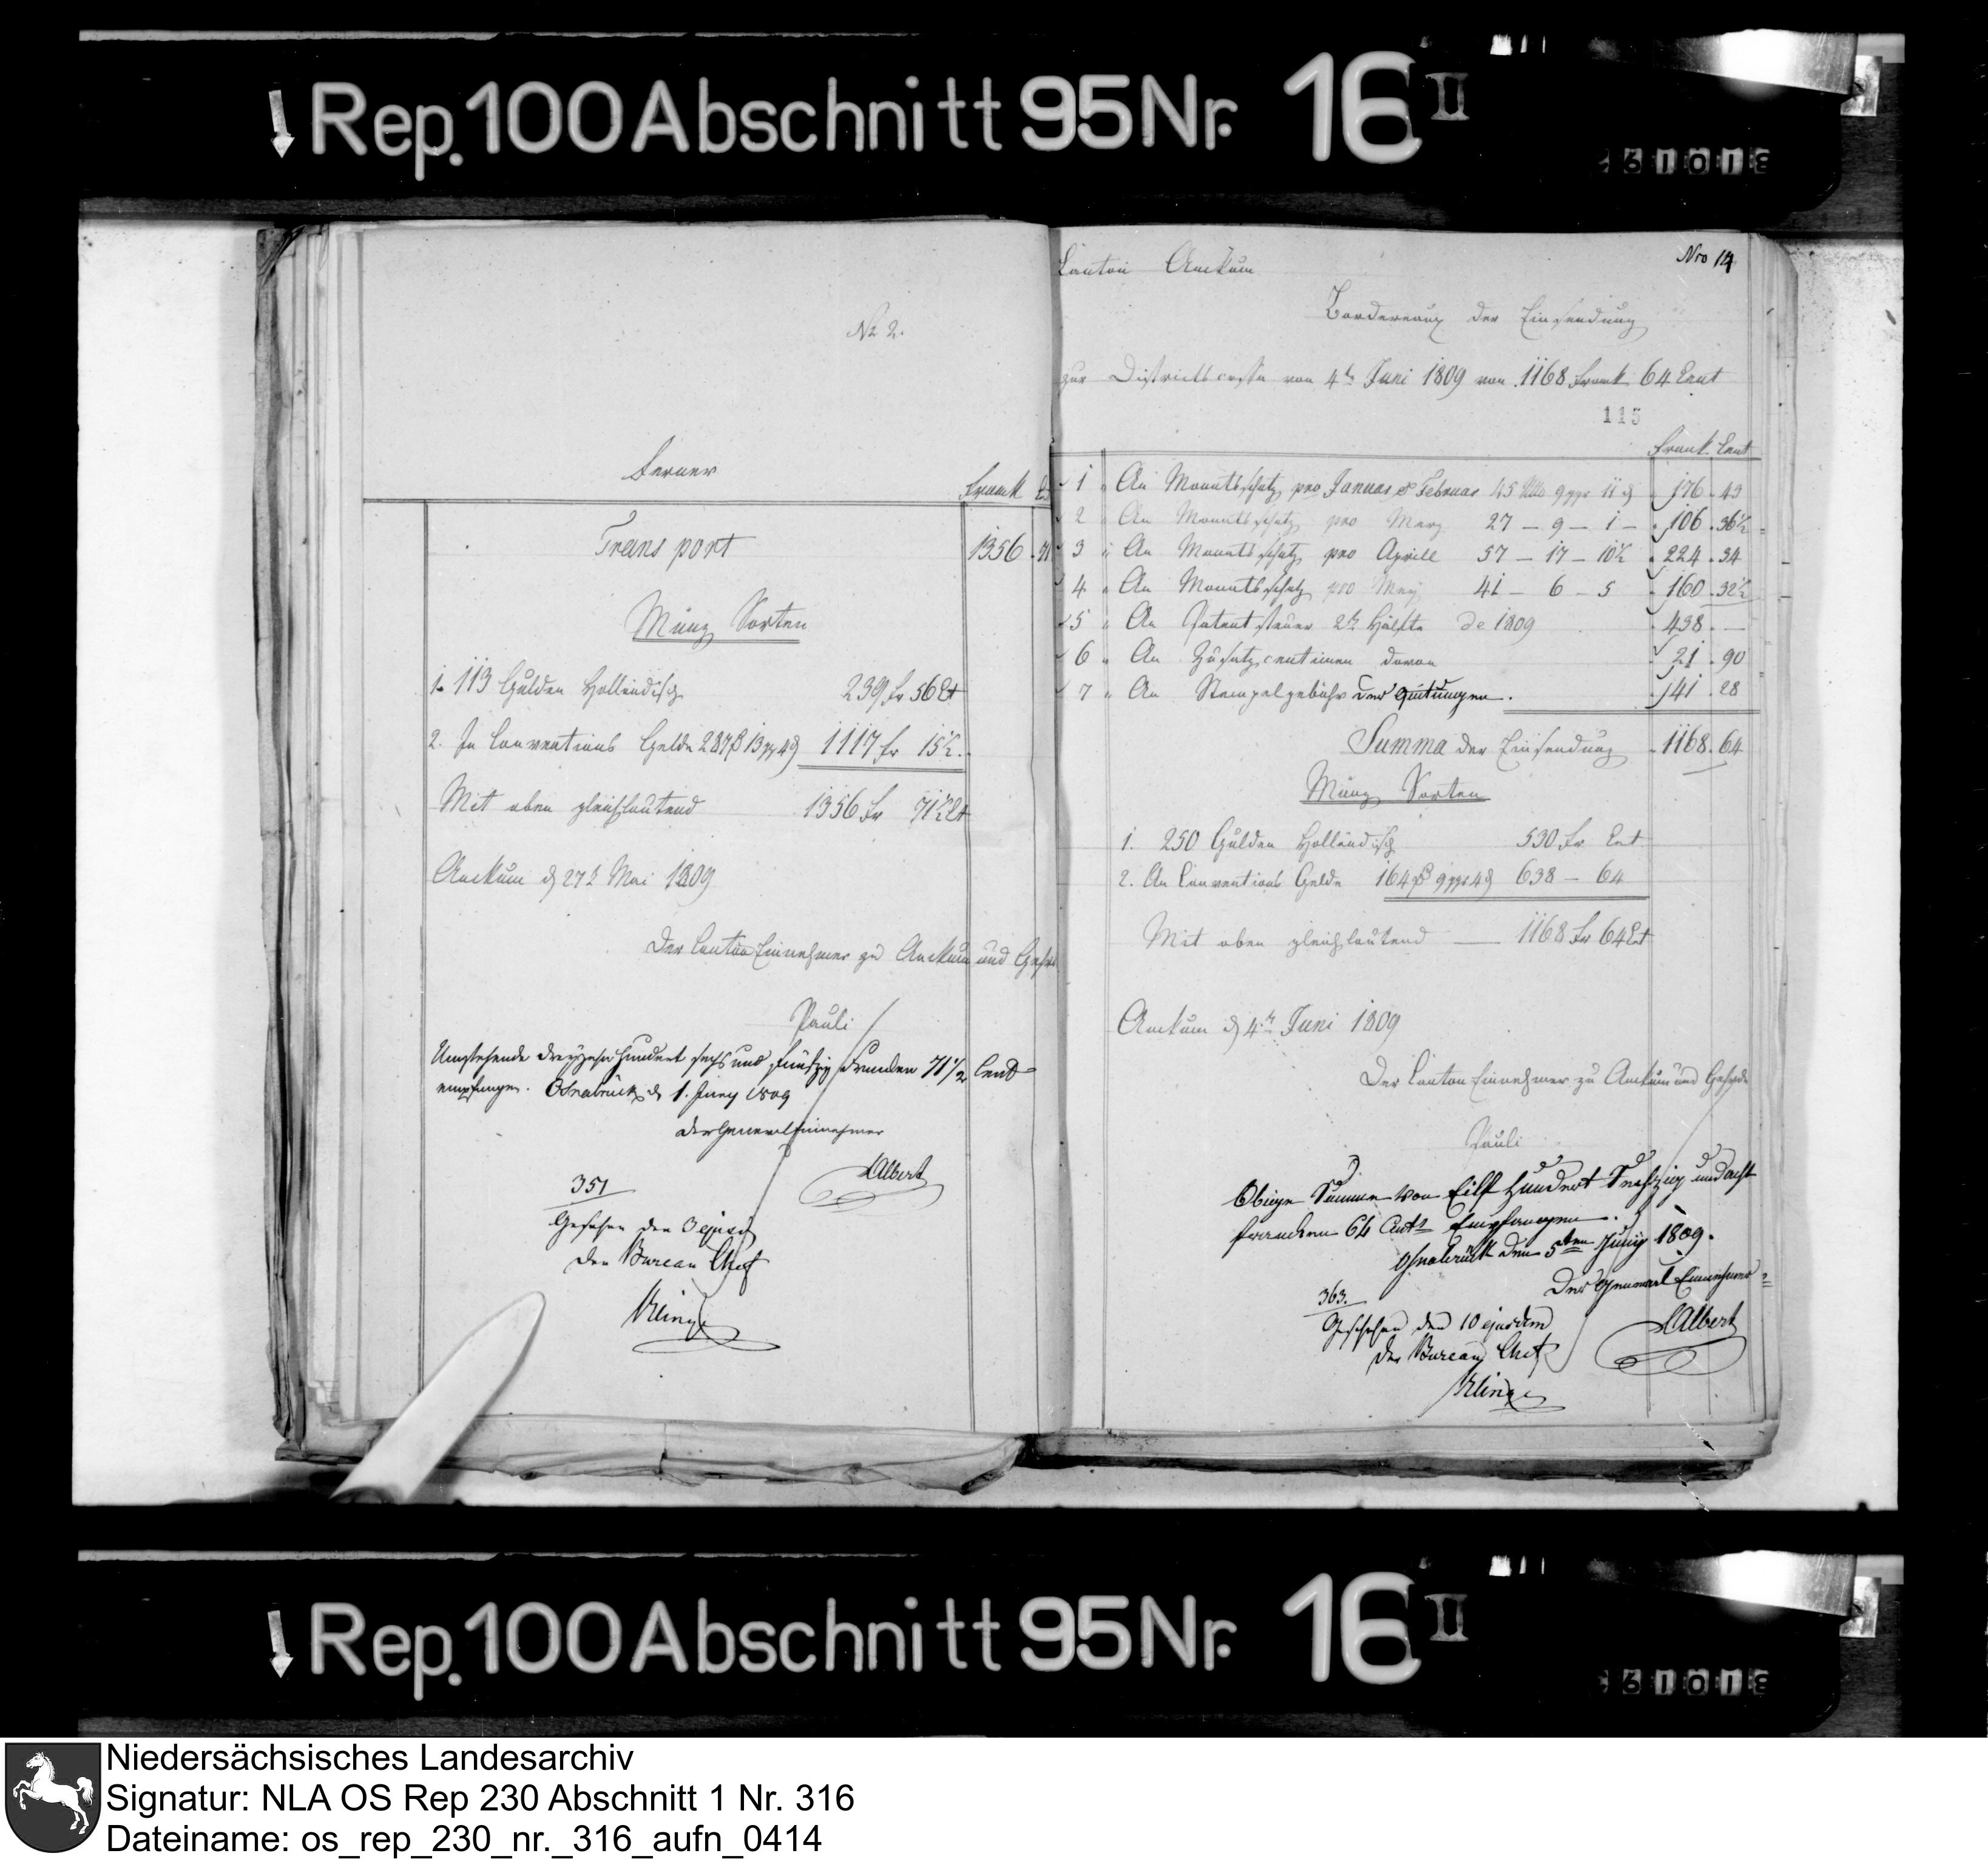 Rep. 100 Abschnitt 95 Nr. 16 II
No 2.
Ferner
Frank Ct
Transport 1356 . 71
Müntz Sorten
1. 113 Gulden Holländisch 239 fr 56 Ct
2. In Conventions Gelde 287 13 4 1117 fr 15½.
Mit oben gleichlautend 1356 Fr 71½ Ct
Anckum d 27t Mai 1809
Der Canton Einnehmer zu Anckum und Gehrde
Pauli
Umstehende dreyzehn hundert sechs und fünfzig Franken 71½ Cent
empfangen. Osnabrück d 1. Juny 1809
der General Einnehmer
Albert
351
Gesehen den 3 ejusd
Der Bureau Chef
Klinge
Nro 14
Canton Anckum
Bordereaux der Einsendung
zur Districts cassa von 4t Juni 1809 von 1168 Frank 64 Cent
115
Frank Cent
1 An Monatsschatz pro Januar & Februar 45 9 11 176 . 43
2 An Monatsschatz pro Merz 27 – 9 – 1 – 106 . 36½
3 An Monatsschatz pro Aprill 57 – 17 – 10½ 224 . 34
4 An Monatsschatz pro Mey 41 – 6 – 5 160 . 32½
5 An Patentsteuer 2te Hälfte de 1809 438 . —
6 An Zusatz centimen davon 21 . 90
7 An Stempelgebühr der Quitungen . 41 . 28
Summa der Einsendung 1168 . 64
Müntz Sorten
1. 250 Gulden Holländisch 530 Fr Cnt
2. An Conventions Gelde 164 9 4 638 – 64
Mit oben gleichlautend — 1168 Fr 64 Cnt
Anckum d 4t Juni 1809
Der Canton Einnehmer zu Anckum und Gehrde
Pauli
Obige Summe von Eilf Hundert Sechszig und acht
Franken 64 Cents Empfangen.
Osnabrück den 5ten Juny 1809.
Der General Einnehmer
Albert
363.
Gesehen den 10 ejusdem
der Bureau Chef
Klinge
Rep. 100 Abschnitt 95 Nr. 16 II
Niedersächsisches Landesarchiv
Signatur: NLA OS Rep 230 Abschnitt 1 Nr. 316
Dateiname: os_rep_230_nr._316_aufn_0414